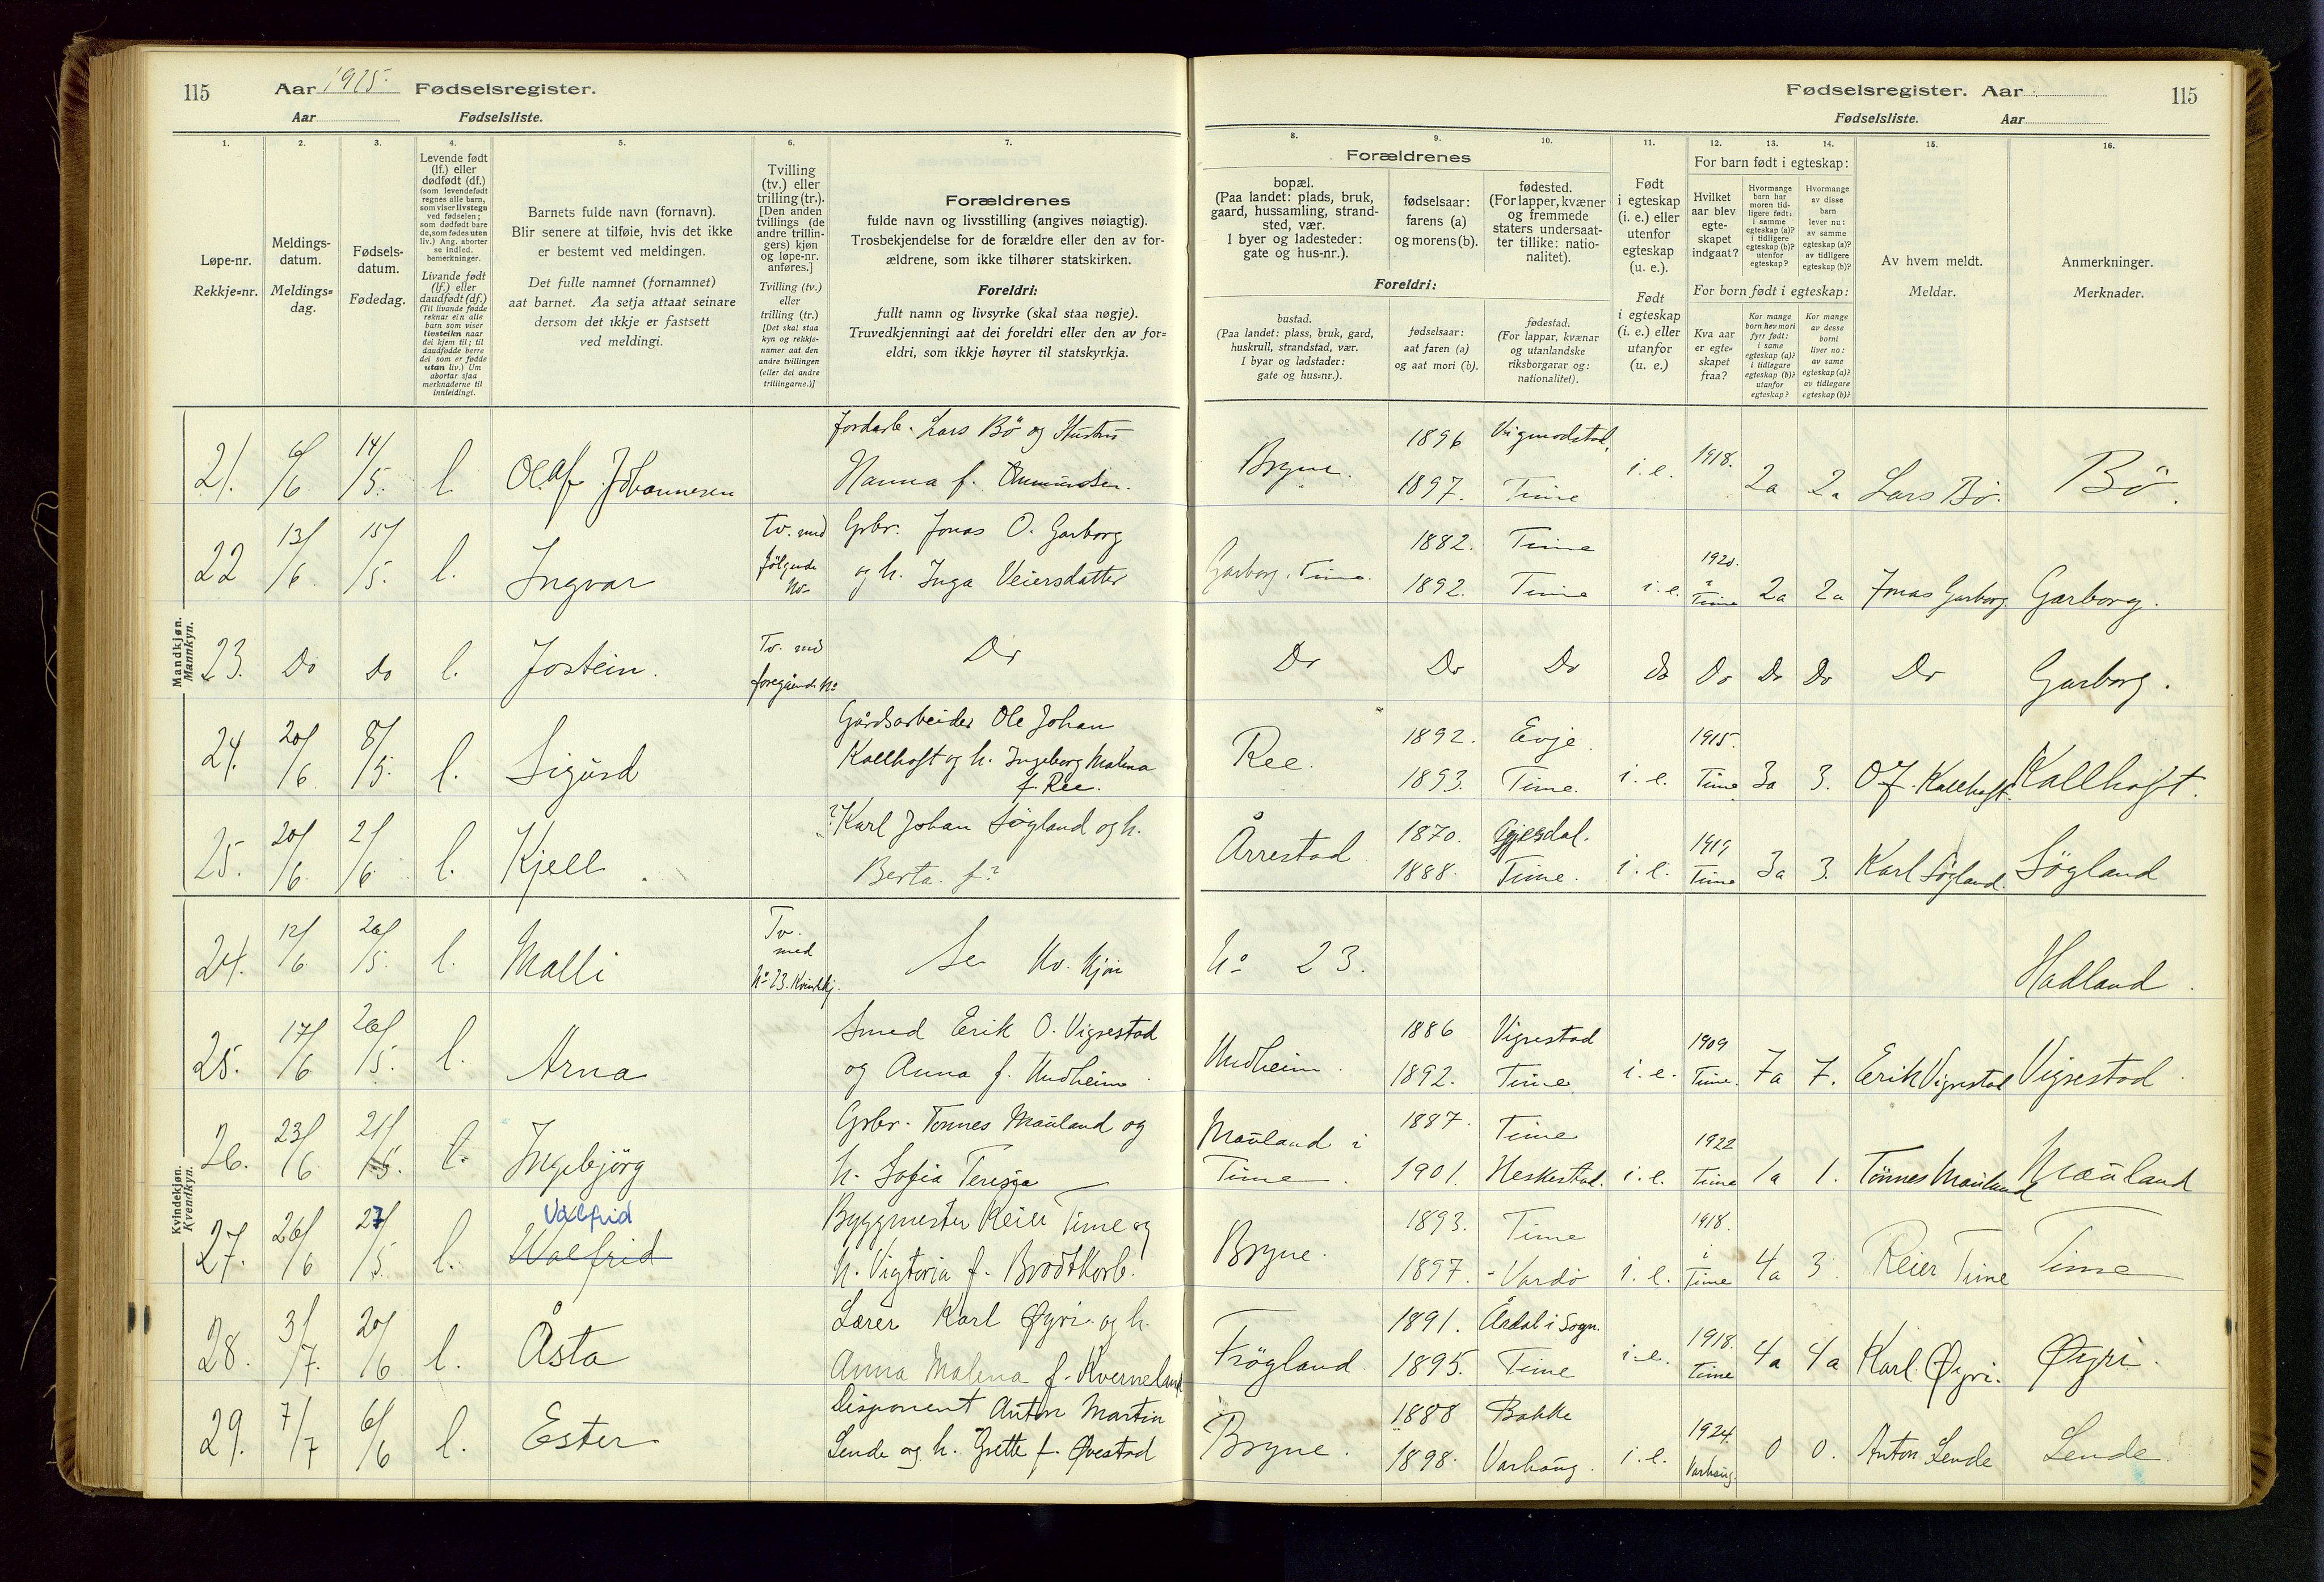 115 Aar 1925. Fødselsregister.
Aar Fødselsliste.
Fødselsregister. Aar 115
Fødselsliste. Aar
1. 2. 3. 4. 5. 6. 7.
8. 9. 10. 11. 12. 13. 14. 15. 16.
Løpe-nr.
Rekkje=nr.
Meldings-
datum.
Meldings=
dag.
Fødsels-
datum.
Fødedag.
Levende født
(lf.) eller
dødfødt (df.)
(som levendefødt
regnes alle barn,
som viser livstegn
ved fødselen;
som dødfødt bare
de, som fødes uten
liv.) Ang. aborter
se indled.
bemerkninger.
Livande født
(lf.) eller
daudfødt (df.)
(Til livande fødde
reknar ein alle
barn som viser
livsteikn naar
dei kjem til; til
daudfødde berre
dei som er fødde
utan liv.) Um
abortar sjaa
merknaderne til
innleidingi.
Barnets fulde navn (fornavn).
Blir senere at tilføie, hvis det ikke
er bestemt ved meldingen.
Det fulle namnet (fornamnet)
aat barnet. Aa setja attaat seinare
dersom det ikkje er fastsett
ved meldingi.
Tvilling
(tv.) eller
trilling (tr.).
[Den anden
tvillings (de
andre trillin-
gers) kjøn
og løpe-nr.
anføres.]
Tvilling (tv.)
eller
trilling (tr.)
[Det skal staa
kyn og rekkje-
numer aat den
andre tvillingen
(eller dei andre
trillingarne.)]
Forældrenes
fulde navn og livsstilling (angives nøiagtig).
Trosbekjendelse for de forældre eller den av for-
ældrene, som ikke tilhører statskirken.
Foreldri:
fullt namn og livsyrke (skal staa nøgje).
Truvedkjenningi aat dei foreldri eller den av for=
eldri, som ikkje høyrer til statskyrkja.
Forældrenes
bopæl.
(Paa landet: plads, bruk,
gaard, hussamling, strand-
sted, vær.
I byer og ladesteder:
gate og hus-nr.).
fødselsaar:
farens (a)
og morens (b).
fødested.
(For lapper, kvæner
og fremmede
staters undersaat-
ter tillike: natio-
nalitet).
Foreldri:
bustad.
(Paa landet: plass, bruk, gard,
huskrull, strandstad, vær.
I byar og ladstader:
gate og hus=nr.).
fødselsaar:
aat faren (a)
og aat mori (b).
fødestad.
(For lappar, kvænar
og utanlandske
riksborgarar og:
nationalitet).
Født
i egteskap
(i. e.) eller
utenfor
egteskap
(u. e.).
Født
i egteskap
(i. e.) eller
utanfor
(u. e.)
For barn født i egteskap:
Hvilket
aar blev
egte-
skapet
indgaat?
Hvormange
barn har
moren tid-
ligere født:
i samme
egteskap (a)?
i tidligere
egteskap (b)?
utenfor
egteskap?
Hvormange
av disse
barn
lever nu:
av samme
egteskap (a)?
av tidligere
egteskap (b)?
For born født i egteskap:
Kva aar
er egte=
skapet
fraa?
Kor mange
born hev mori
fyrr født:
i same
egteskap (a)?
i tidlegare
egteskap (b)?
utanfor
egteskap?
Kor mange
av desse
borni
liver no:
av same
egteskap (a)?
av tidlegare
egteskap (b)?
Av hvem meldt.
Meldar.
Anmerkninger.
Merknader.
Mandkjøn.
Mannkyn.
21. 6/6 14/5. l. Olaf Johannesen Jordarb. Lars Bö og Hustru
Hanna f. Bryne. 1896 Vigmodstad.
1897. Time i. e. 1918. 2a 2a Lars Bö. Bö.
22 13/6. 15/5. l. Ingvar Tv. med
følgende
No Grbr. Jonas O. Garborg
og h. Inga Veiersdatter Garborg. Time. 1882. Time
1892. Time i. e. 1920.
i
Time 2a 2a Jonas Garborg Garborg.
23. Do Do l. Jostein. Tv. med
foregående No Do Do Do Do Do Do Do Do Do Garborg.
24. 20/6. 8/5. l. Sigurd Gårdsarbeider Ole Johan
Kallhoft og h. Ingeborg Malena
f. Ree. Ree. 1892. Evje.
1893. Time. i. e. 1915.
Time 3a 3. O J. Kallhoft. Kallhoft.
25. 20/6 2/6 l. Kjell. ? Karl Johan Søgland og h.
Berta f? Årrestad 1870. Gjesdal.
1888. Time. i. e. 1919
Time 3a 3. Karl Søgland. Søgland
Kvindekjøn.
Kvendkyn.
24. 12/6 26/5. l. Malli Tv.
med
No 23. Kvindekj. Se Kv. Kjøn No 23. Hadland.
25. 17/6 26/5. l. Arna Smed Erik O. Vigrestad
og Anna f. Undheim. Undheim. 1886 Vigrestad
1892. Time i. e. 1909
Time. 7a 7. Erik Vigrestad Vigrestad
26. 23/6 21/5. l. Ingebjörg Grbr. Tønnes Mauland og
h. Sofia Teresja Mauland i
Time. 1887. Time
1901. Heskestad. i. e. 1922
Time 1a 1. Tønnes Mauland Mauland
27. 26/6 27/5. l. Valfrid
Walfrid Byggmester Reier Time og
h. Vigtoria f. Brodtkorb. Bryne. 1893. Time
1897. - Vardö i. e. 1918.
i
Time 4a 3. Reier Time Time
28. 3/7. 20/6 l. Åsta Lærer Karl Øyri og h.
Anna Malena f. Kverneland Frøgland. 1891. Årdal i Sogn.
1895. Time i. e. 1918.
Time 4a 4a Karl Øyri. Øyri.
29. 7/7 6/6 l. Ester Disponent Anton Martin
Lende og h. Grette f. Øvestad Bryne. 1888 Bakke
1898. Varhaug. i. e. 1924.
Varhaug. 0 0. Anton Lende Lende